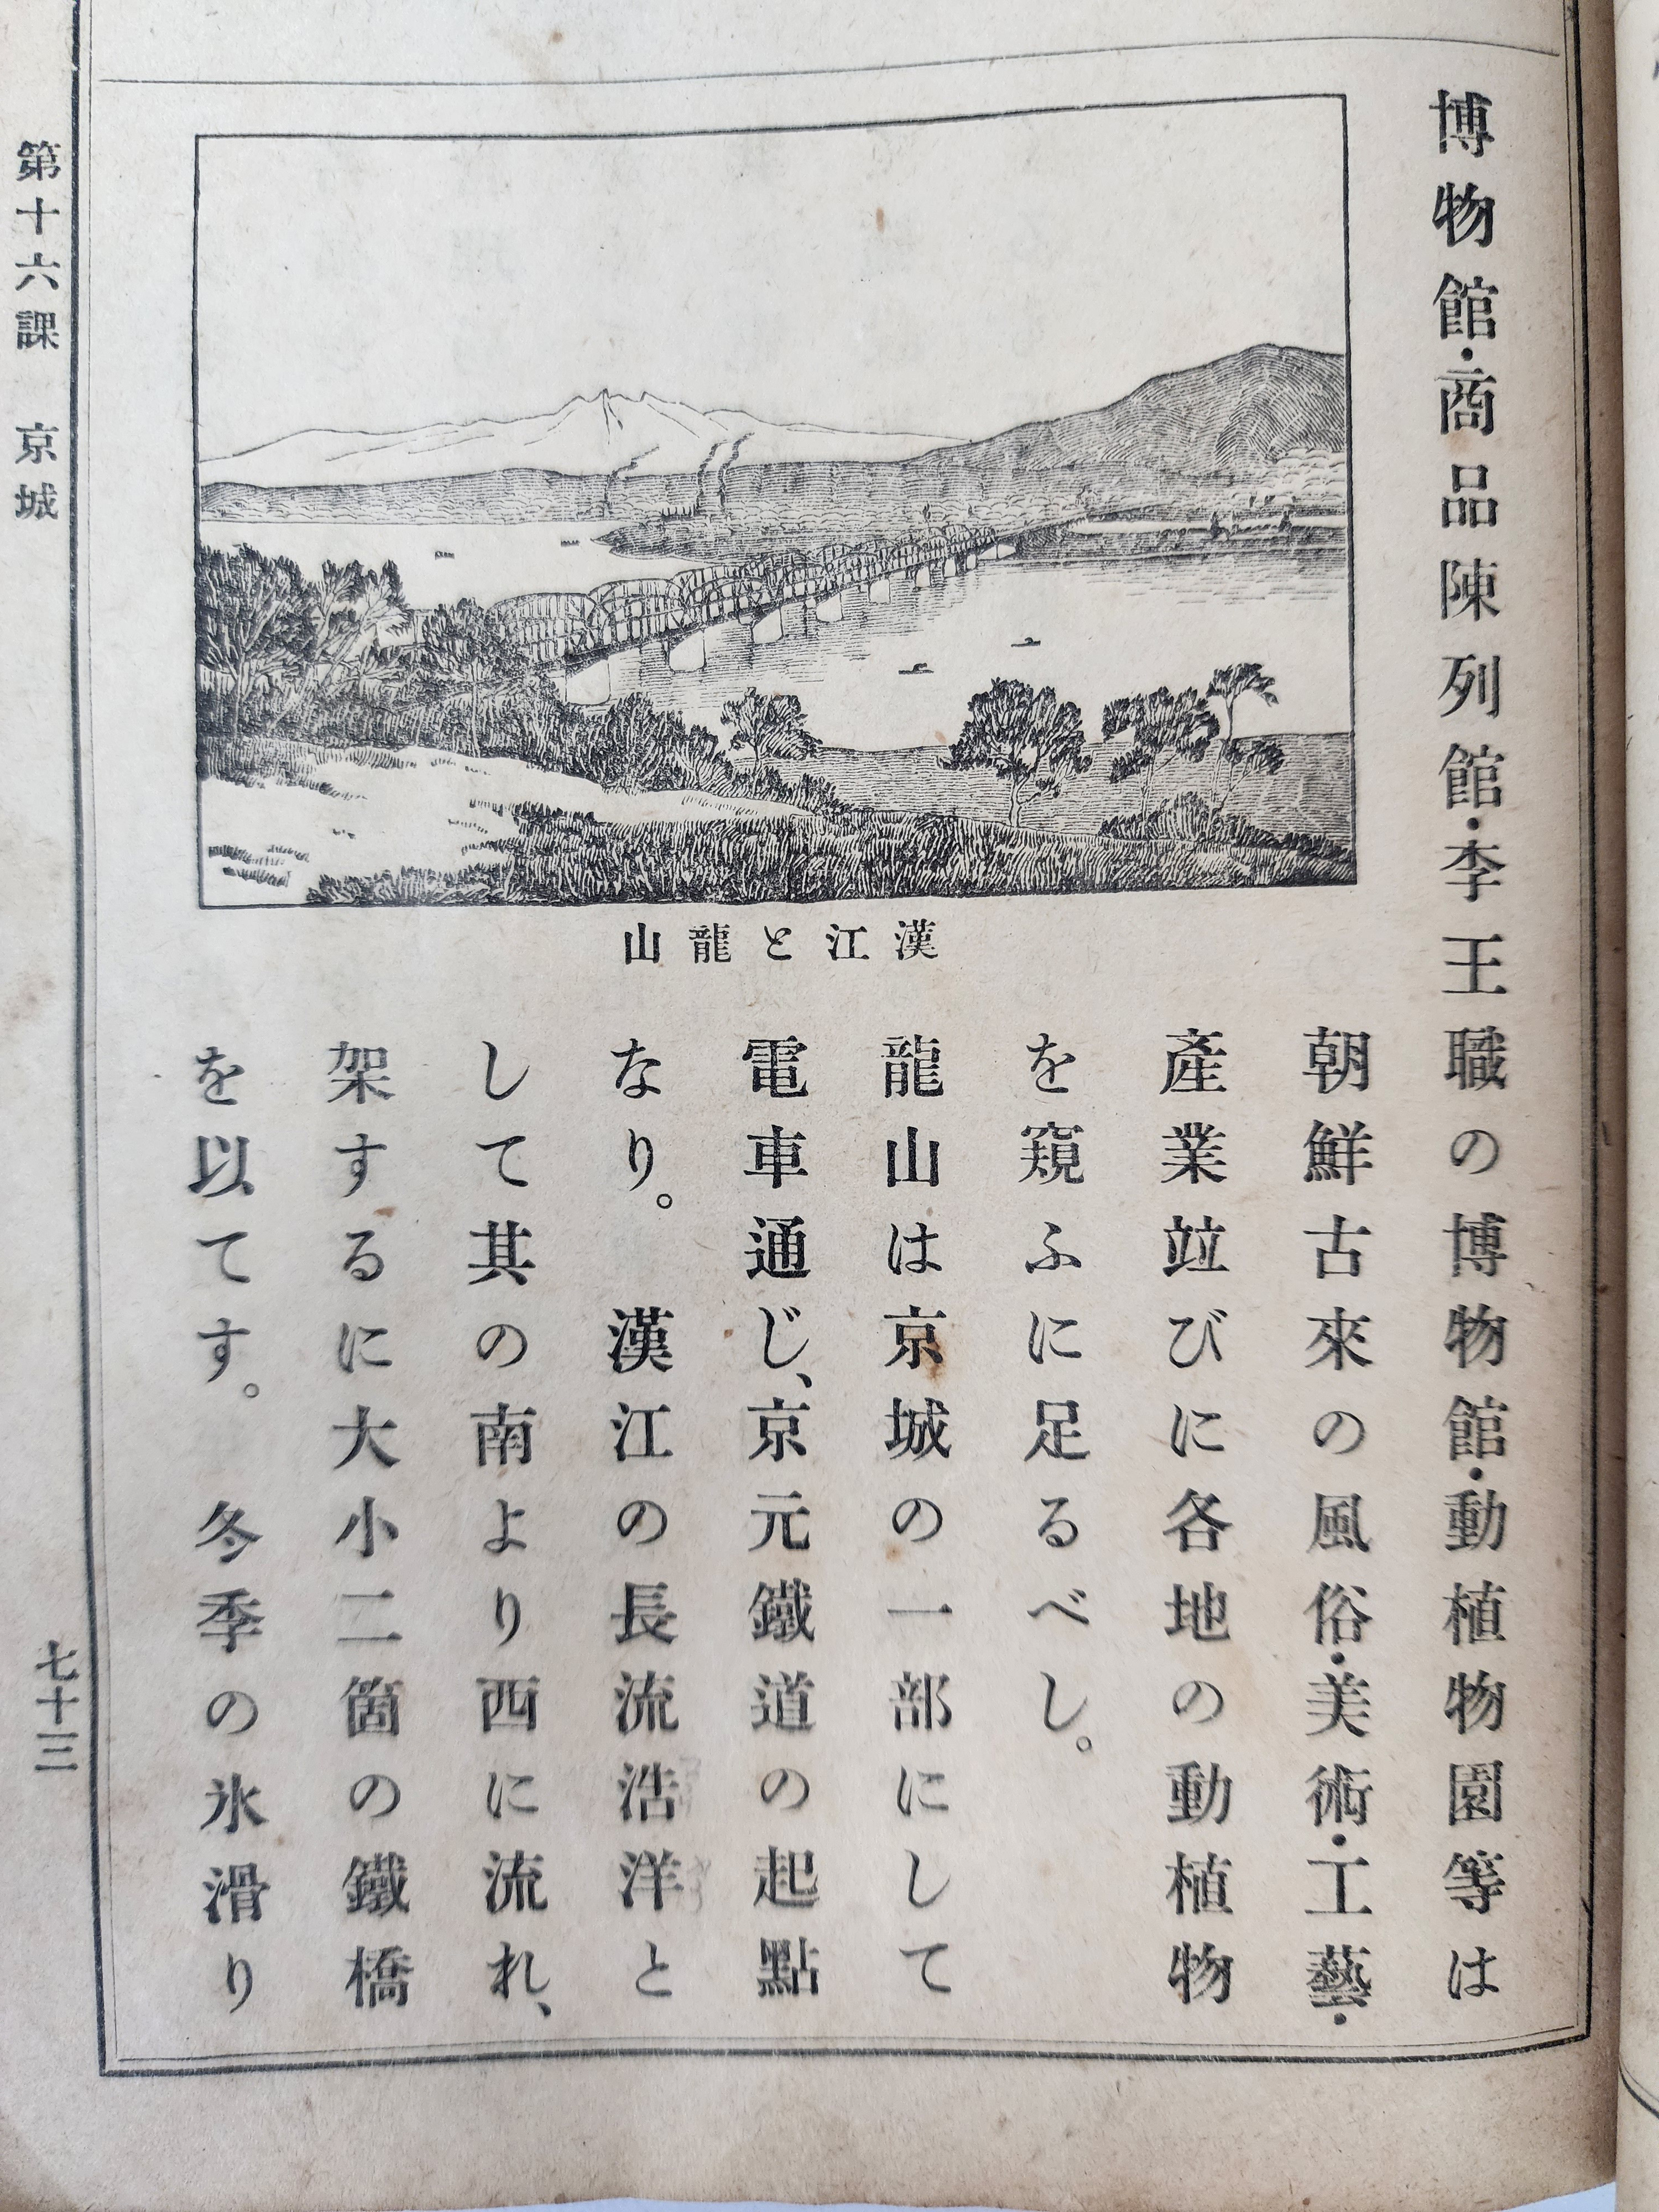 博物館・商品陳列館・李王職の博物館・動植物園等は
朝鮮古來の風俗・美術・工藝・
產業竝びに各地の動植物
を窺ふに足るべし。
龍山は京城の一部にして
電車通じ、京元鐵道の起點
なり。　漢江の長流浩洋と
して其の南より西に流れ、
架するに大小二箇の鐵橋
を以てす。　冬季の氷滑り
漢江と龍山
第十六課　京城
七十三